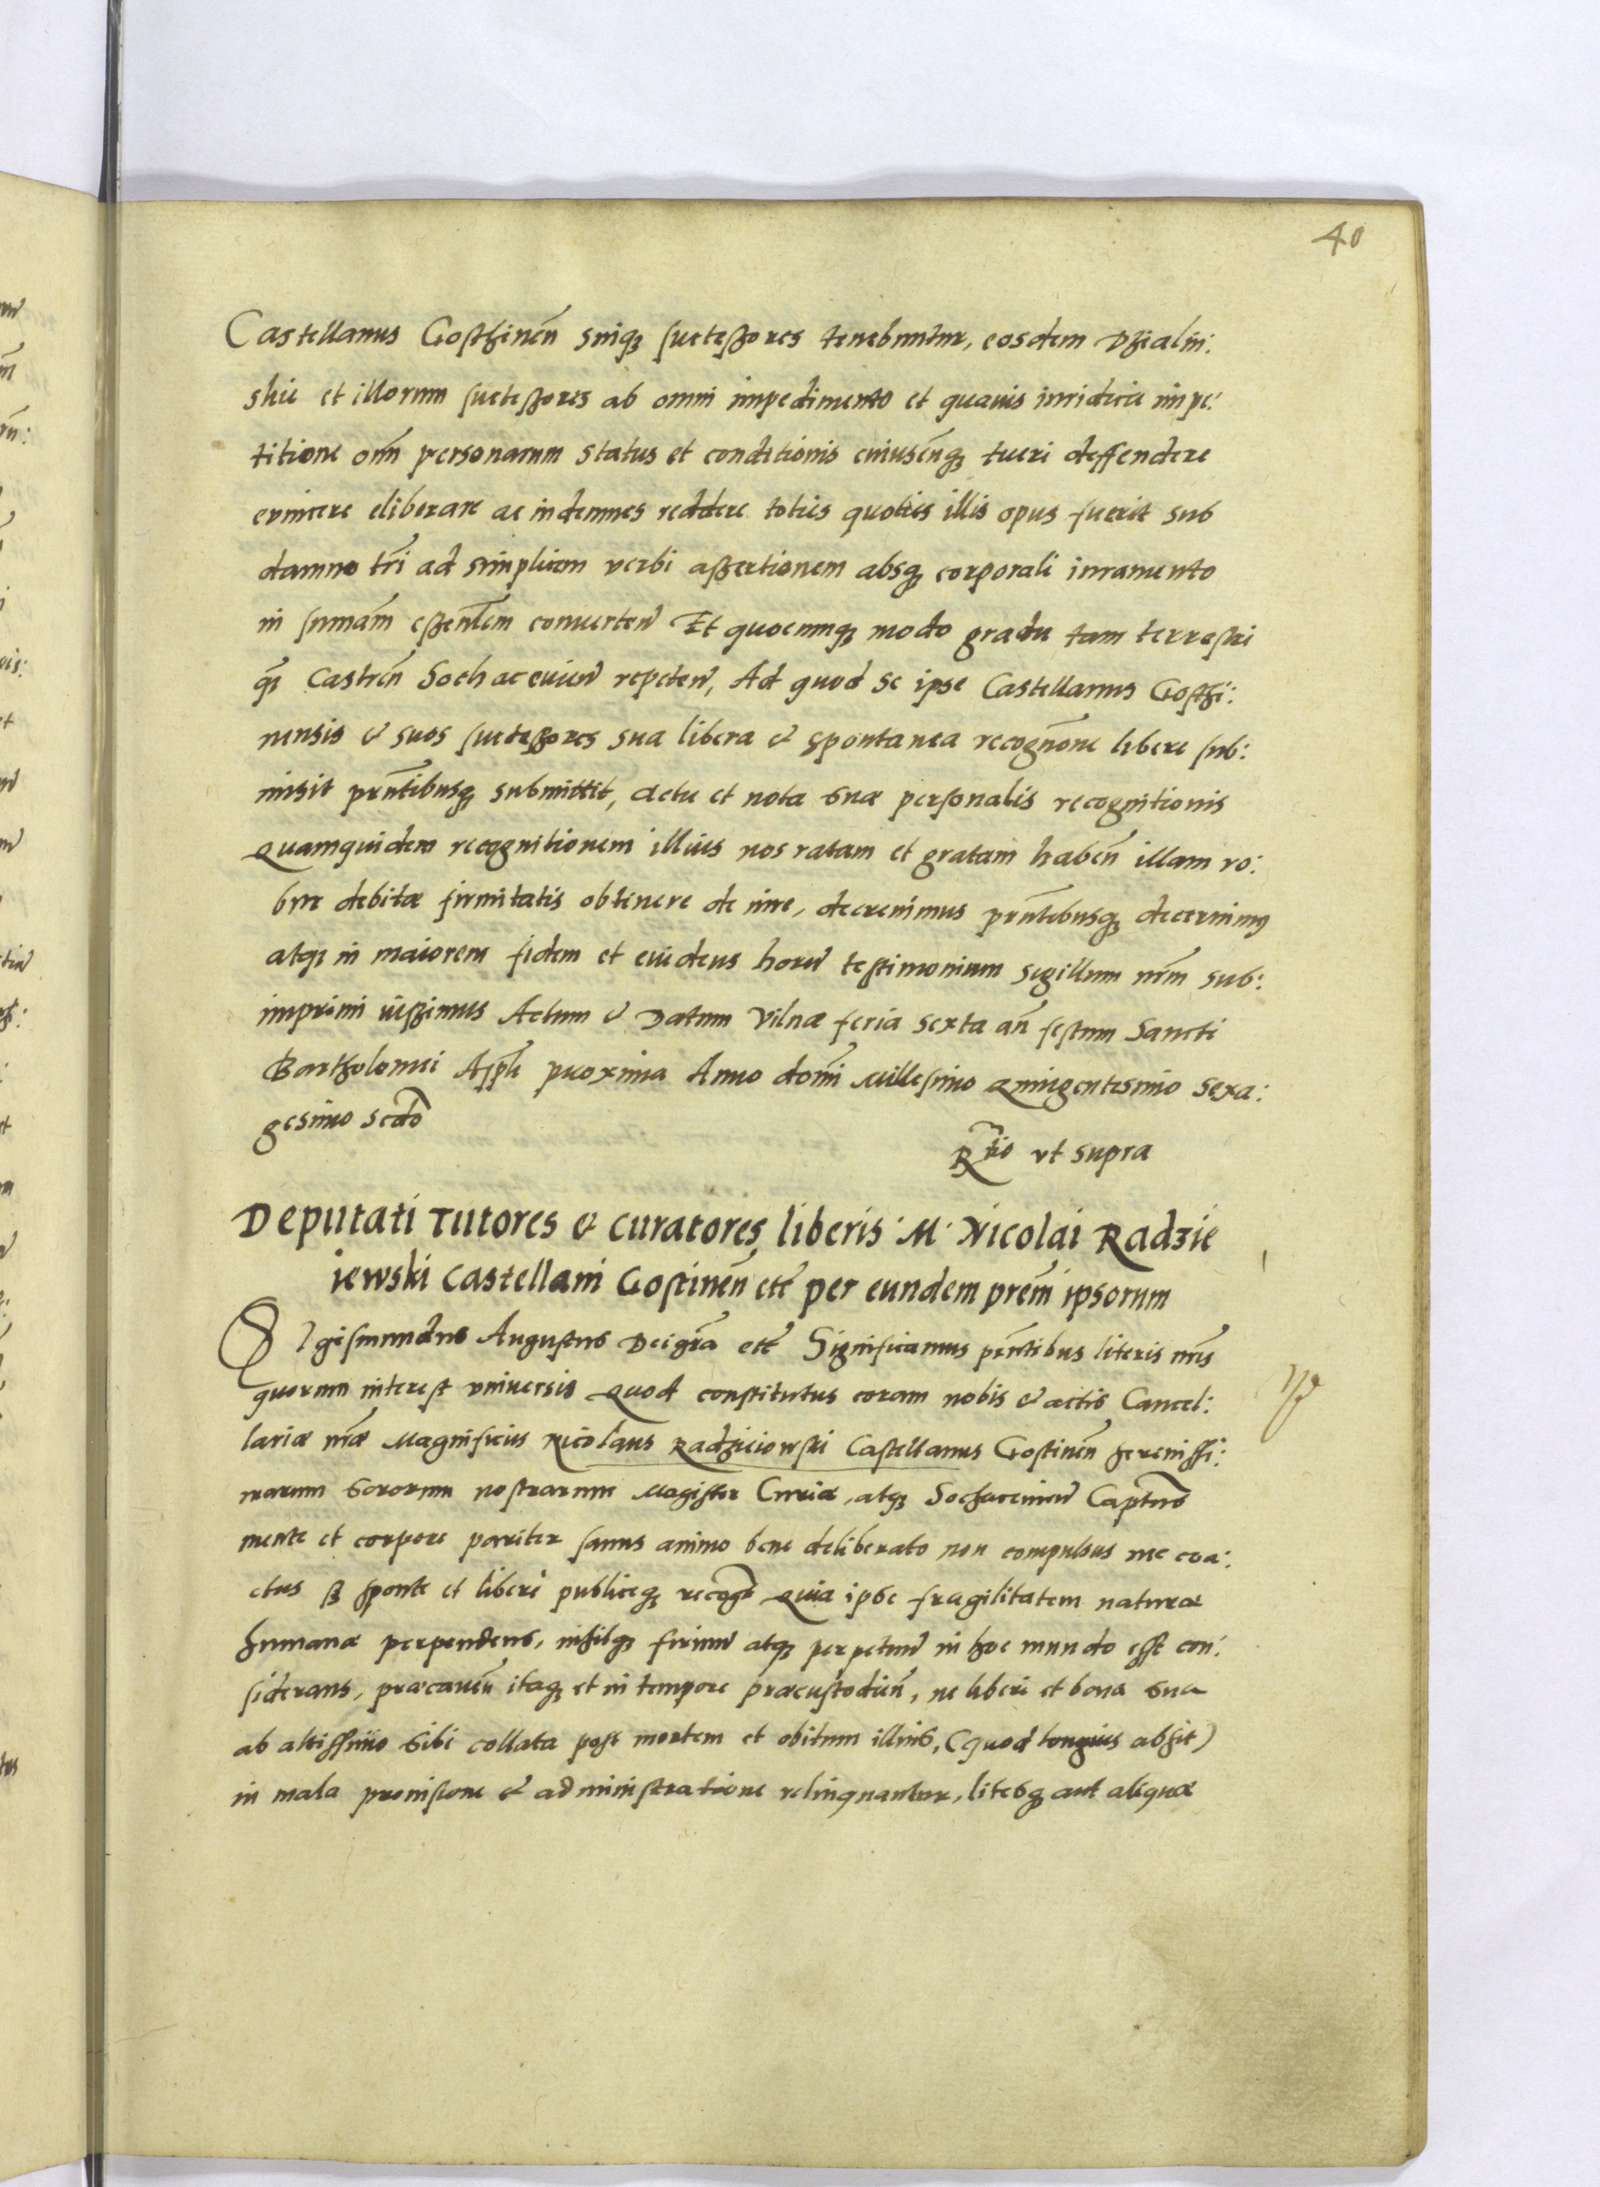 40
Castellanus Gosthinen̄ suiq₃ successores tenebuntur, eosdem Dzialin:
skie et illorum successores ab omni impedimento et quauis iuridica impe:
titione om̄ personarum status et conditionis cuiuscūq₃ tueri deffendere
euincere eliberare ac indemnes reddere toties quoties illis opus fuerit sub
damno tr̄i ad simplicem verbi assertionem absq₃ corporali iuramento
in sumam̄ essen̄lem conuerten̄ Et quocunq₃ modo gradu tam terrestri
q̄₃ Castren̄ Sochaceuien̄ repeten̄, Ad quod se ipse Castellanus Gosthi:
nensis & suos successores sua libera & spontanea recogn̄one libere sub:
misit prn̄tibusq₃ submittit, actu et nota suæ personalis recognitionis
Quamquidem recognitionem illius nos ratam et gratam haben̄ illam ro:
bur debitæ firmitatis obtinere de iure, decreuimus prn̄tibusq₃ decernimus
atq₃ in maiorem fidem et euidens horū testimonium sigillum nr̄m sub:
imprimi iussimus Actum & Datum Vilnæ feria sexta an̄ festum Sancti
Bartholomei Appl̄i proxima Anno domī Millesimo Quingentesimo Sexa:
gesimo secdo
R̄tio vt supra
Deputati Tutores & curatores liberis M. Nicolai Radzie
iewski Castellani Gostinen̄ etc̄ per eundem prēm ipsorum
Sigismundus Augustus Dei gr̄a etc̄ Significamus prn̄tibus literis nr̄is
quorum interest vniuersis Quod constitutus coram nobis & actis Cancel:
lariæ nr̄æ Magnificus Nicolaus Radzieiowski Castellanus Gostinen̄ serenissi:
marum Sororum nostrarum Magister Curiæ, atq₃ Sochaceuien̄ Captnus
mente et corpore pariter sanus animo bene deliberato non compulsus nec coa:
ctus s₃ sponte et liberè publiceq₃ recogt Quia ipse fragilitatem naturæ
humanæ perpendens, nihilq₃ firmū atq₃ perpetuū in hoc mundo esse con:
siderans, præcauen̄ itaq₃ et in tempore præcustodien̄, ne liberi et bona sua
ab altissimo sibi collata post mortem et obitum illius, (quod longius absit)
in mala prouisione & administratione relinquantur, litesq₃ aut aliquæ